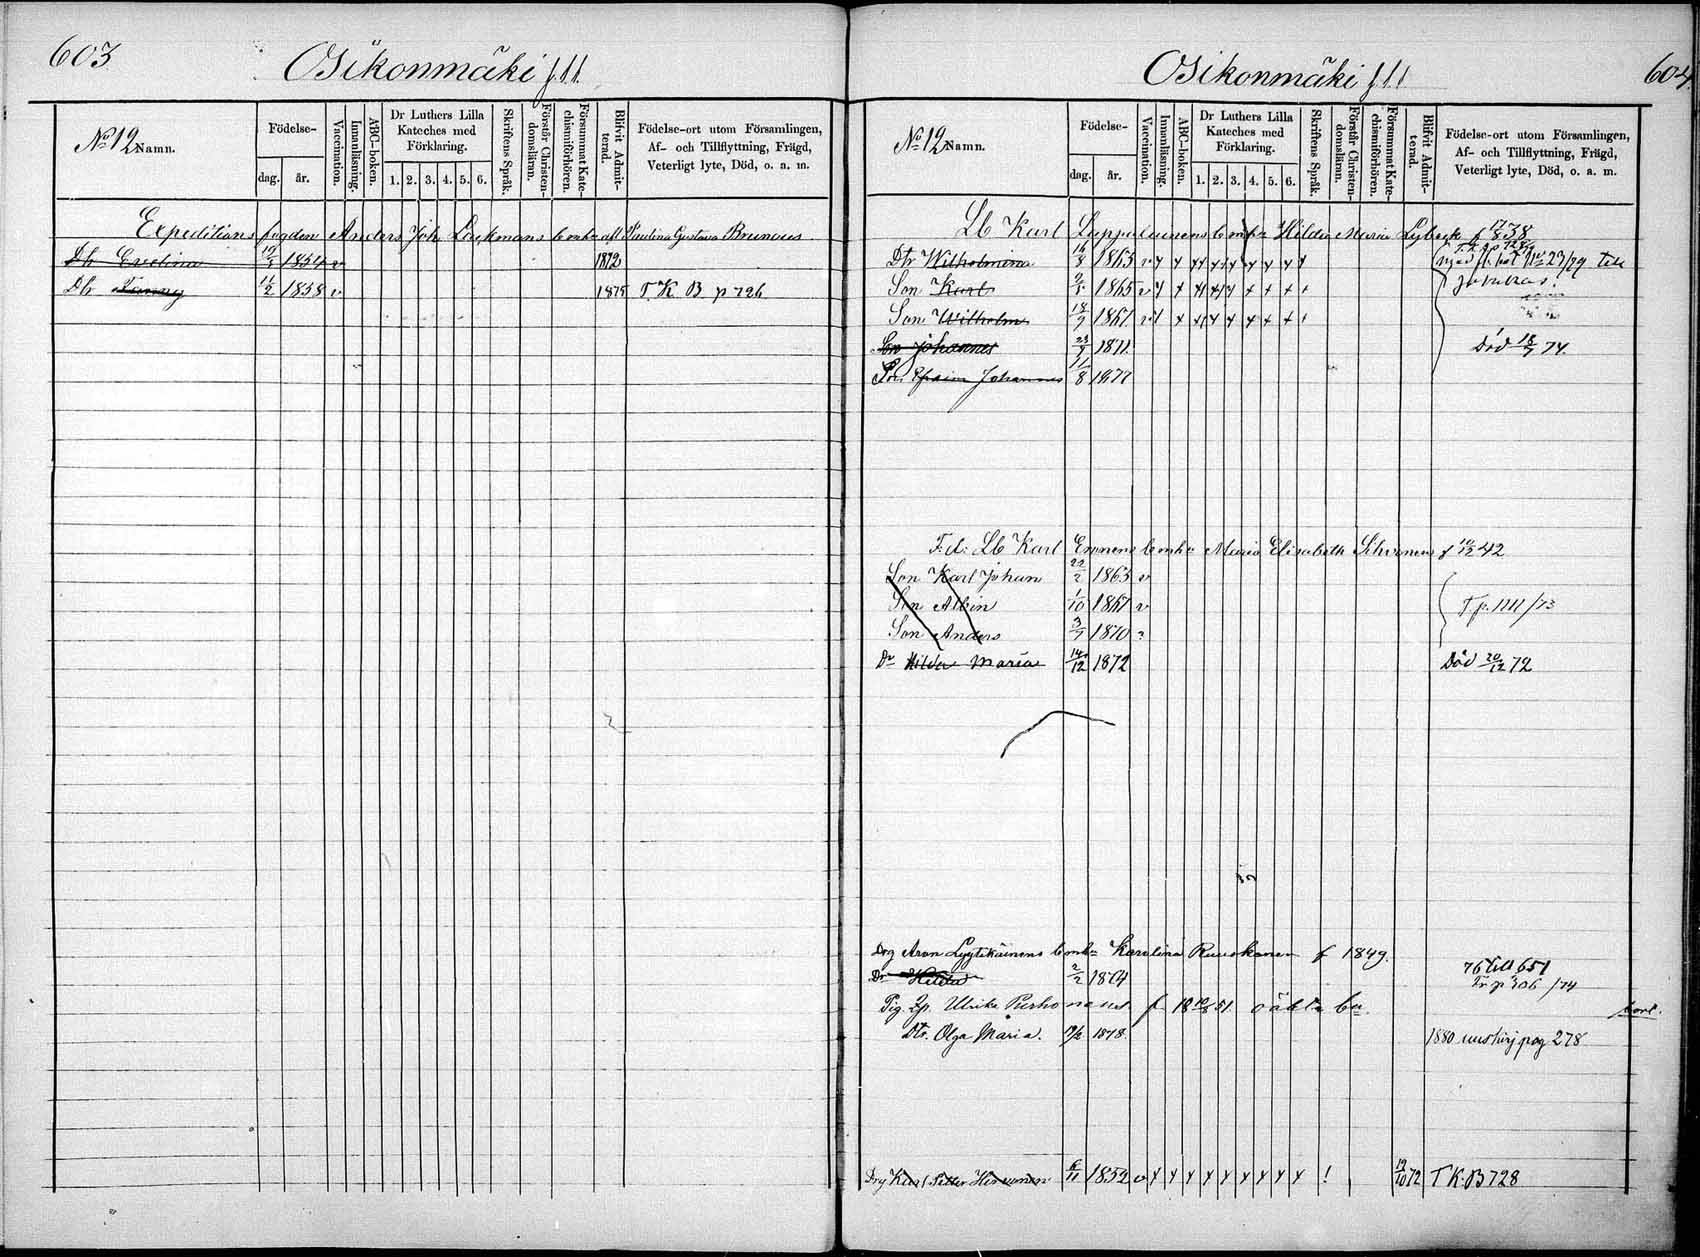 603
Osikonmäki
No 12 Namn.
Födelse-
dag.
år.
Vaccination.
Innanläsning.
ABC-boken.
Dr Luthers Lilla Kateches med Förklaring.
1. 2. 3. 4. 5. 6.
Skriftens Språk.
Förstår Christendomsläran.
Försummat Katechismiförhören.
Blifvit Admitterad.
Födelse-ort utom Församlingen,
Af- och Tillflyttning, Frägd,
Veterligt lyte, Död, o. a. m.
Expeditions fogden Anders Joh. Laukmans Paulina Gustava Brunous
Dtr Evelina 1854 v 1872
Dtr Fanny 11/2 1858 v 1875 T. K. B p 726
Osikonmäki
604
No 12 Namn.
Födelse-
dag.
år.
Vaccination.
Innanläsning.
ABC-boken.
Dr Luthers Lilla Kateches med Förklaring.
1. 2. 3. 4. 5. 6.
Skriftens Språk.
Förstår Christendomsläran.
Försummat Katechismiförhören.
Blifvit Admitterad.
Födelse-ort utom Församlingen,
Af- och Tillflyttning, Frägd,
Veterligt lyte, Död, o. a. m.
Lb Karl Lappalainens Hilda Maria Lybeck f 38
Dtr Wilhelmina 1863 v
Son Karl 1865 v
Son Wilhelm 1867 v
Son Johannes 1871 Död 18/7 74.
Son Efraim Johannes 1/8 1877
F. d. Lb Karl Eronens Maria Elisabeth Sihvonens f 10/12 42
Son Karl Johan 22/2 1863 v
Son Albin 1/10 1867 v T. p. 1111/73
Son Anders 3/7 1870
Dr Hilda Maria 14/12 1872 Död 20/12 72
Drg Aron Lyytikäinens Karolina Ruuskanen f 1849.
Dr Hilda 2/2 1874 76 till 651
Tr. p 306/74
Pig. Ulrika Purhonen f 18 51. oäkta
Dtr. Olga Maria. 1878. 1880 pag 278
Drg Karl Petter Hirvonen 6/11 1852 v 19/10 72 T K. B 728